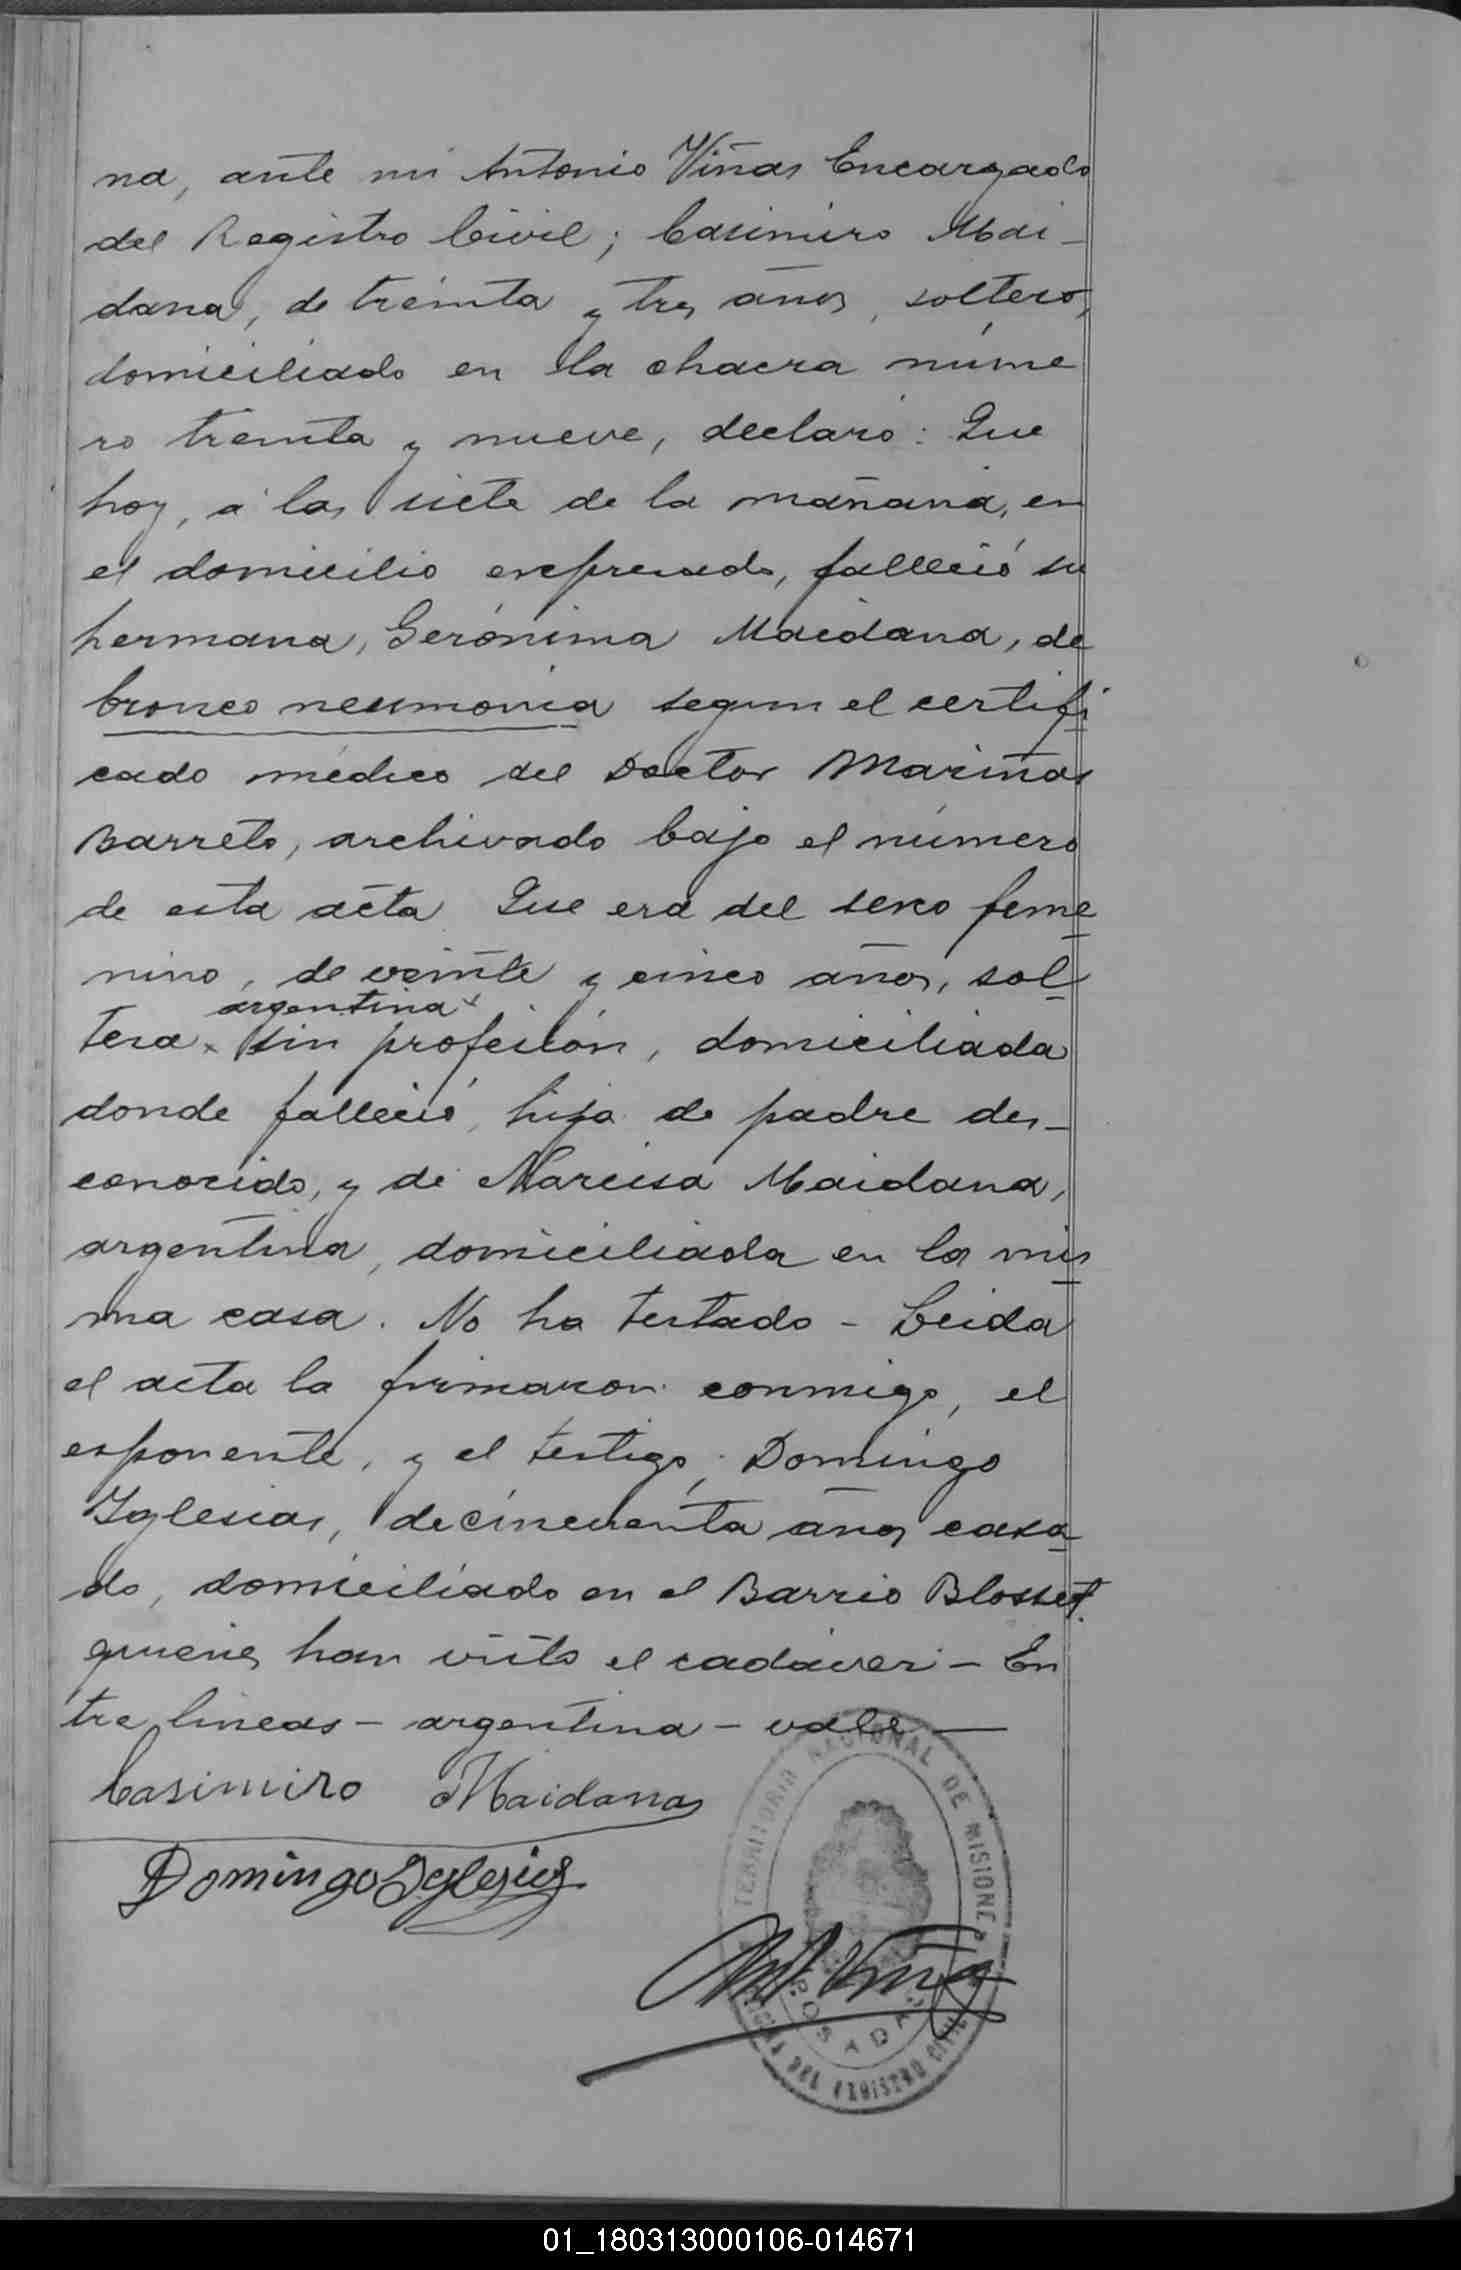 na, ante mi Antonio Viñas Encargado
del Registro Civil; Casimiro Mai-
dana, de treinta y tres años, soltero,
domiciliado en la chacra núme
ro treinta y nueve, declaró: Que
hoy, á las siete de la mañana, en
el domicilio expresado, falleció su
hermana, Gerónima Maidana, de
bronco neumonia segun el certifi
cado médico del Doctor Mariñas
Barreto, archivado bajo el número
de esta acta Que era del sexo feme
nino, de veinte y cinco años, sol
argentina x
tera x sin profesión, domiciliada
donde falleció, hija de padre des-
conocido, y de Narcisa Maidana,
argentina, domiciliada en la mis
ma casa. No ha testado - Leida
el acta la firmaron conmigo, el
exponente, y el testigo; Domingo
Iglesias, de cincuenta años casa
do, domiciliado en el Barrio Blosset.
quienes han visto el cadáver - En
tre lineas - argentina - vale —
Casimiro Maidana
TERRITORIO NACIONAL DE MISIONES
Domingo Iglesias
Ant Viñas
POSADAS
OFICINA DEL REGISTRO CIVIL
01_180313000106-014671